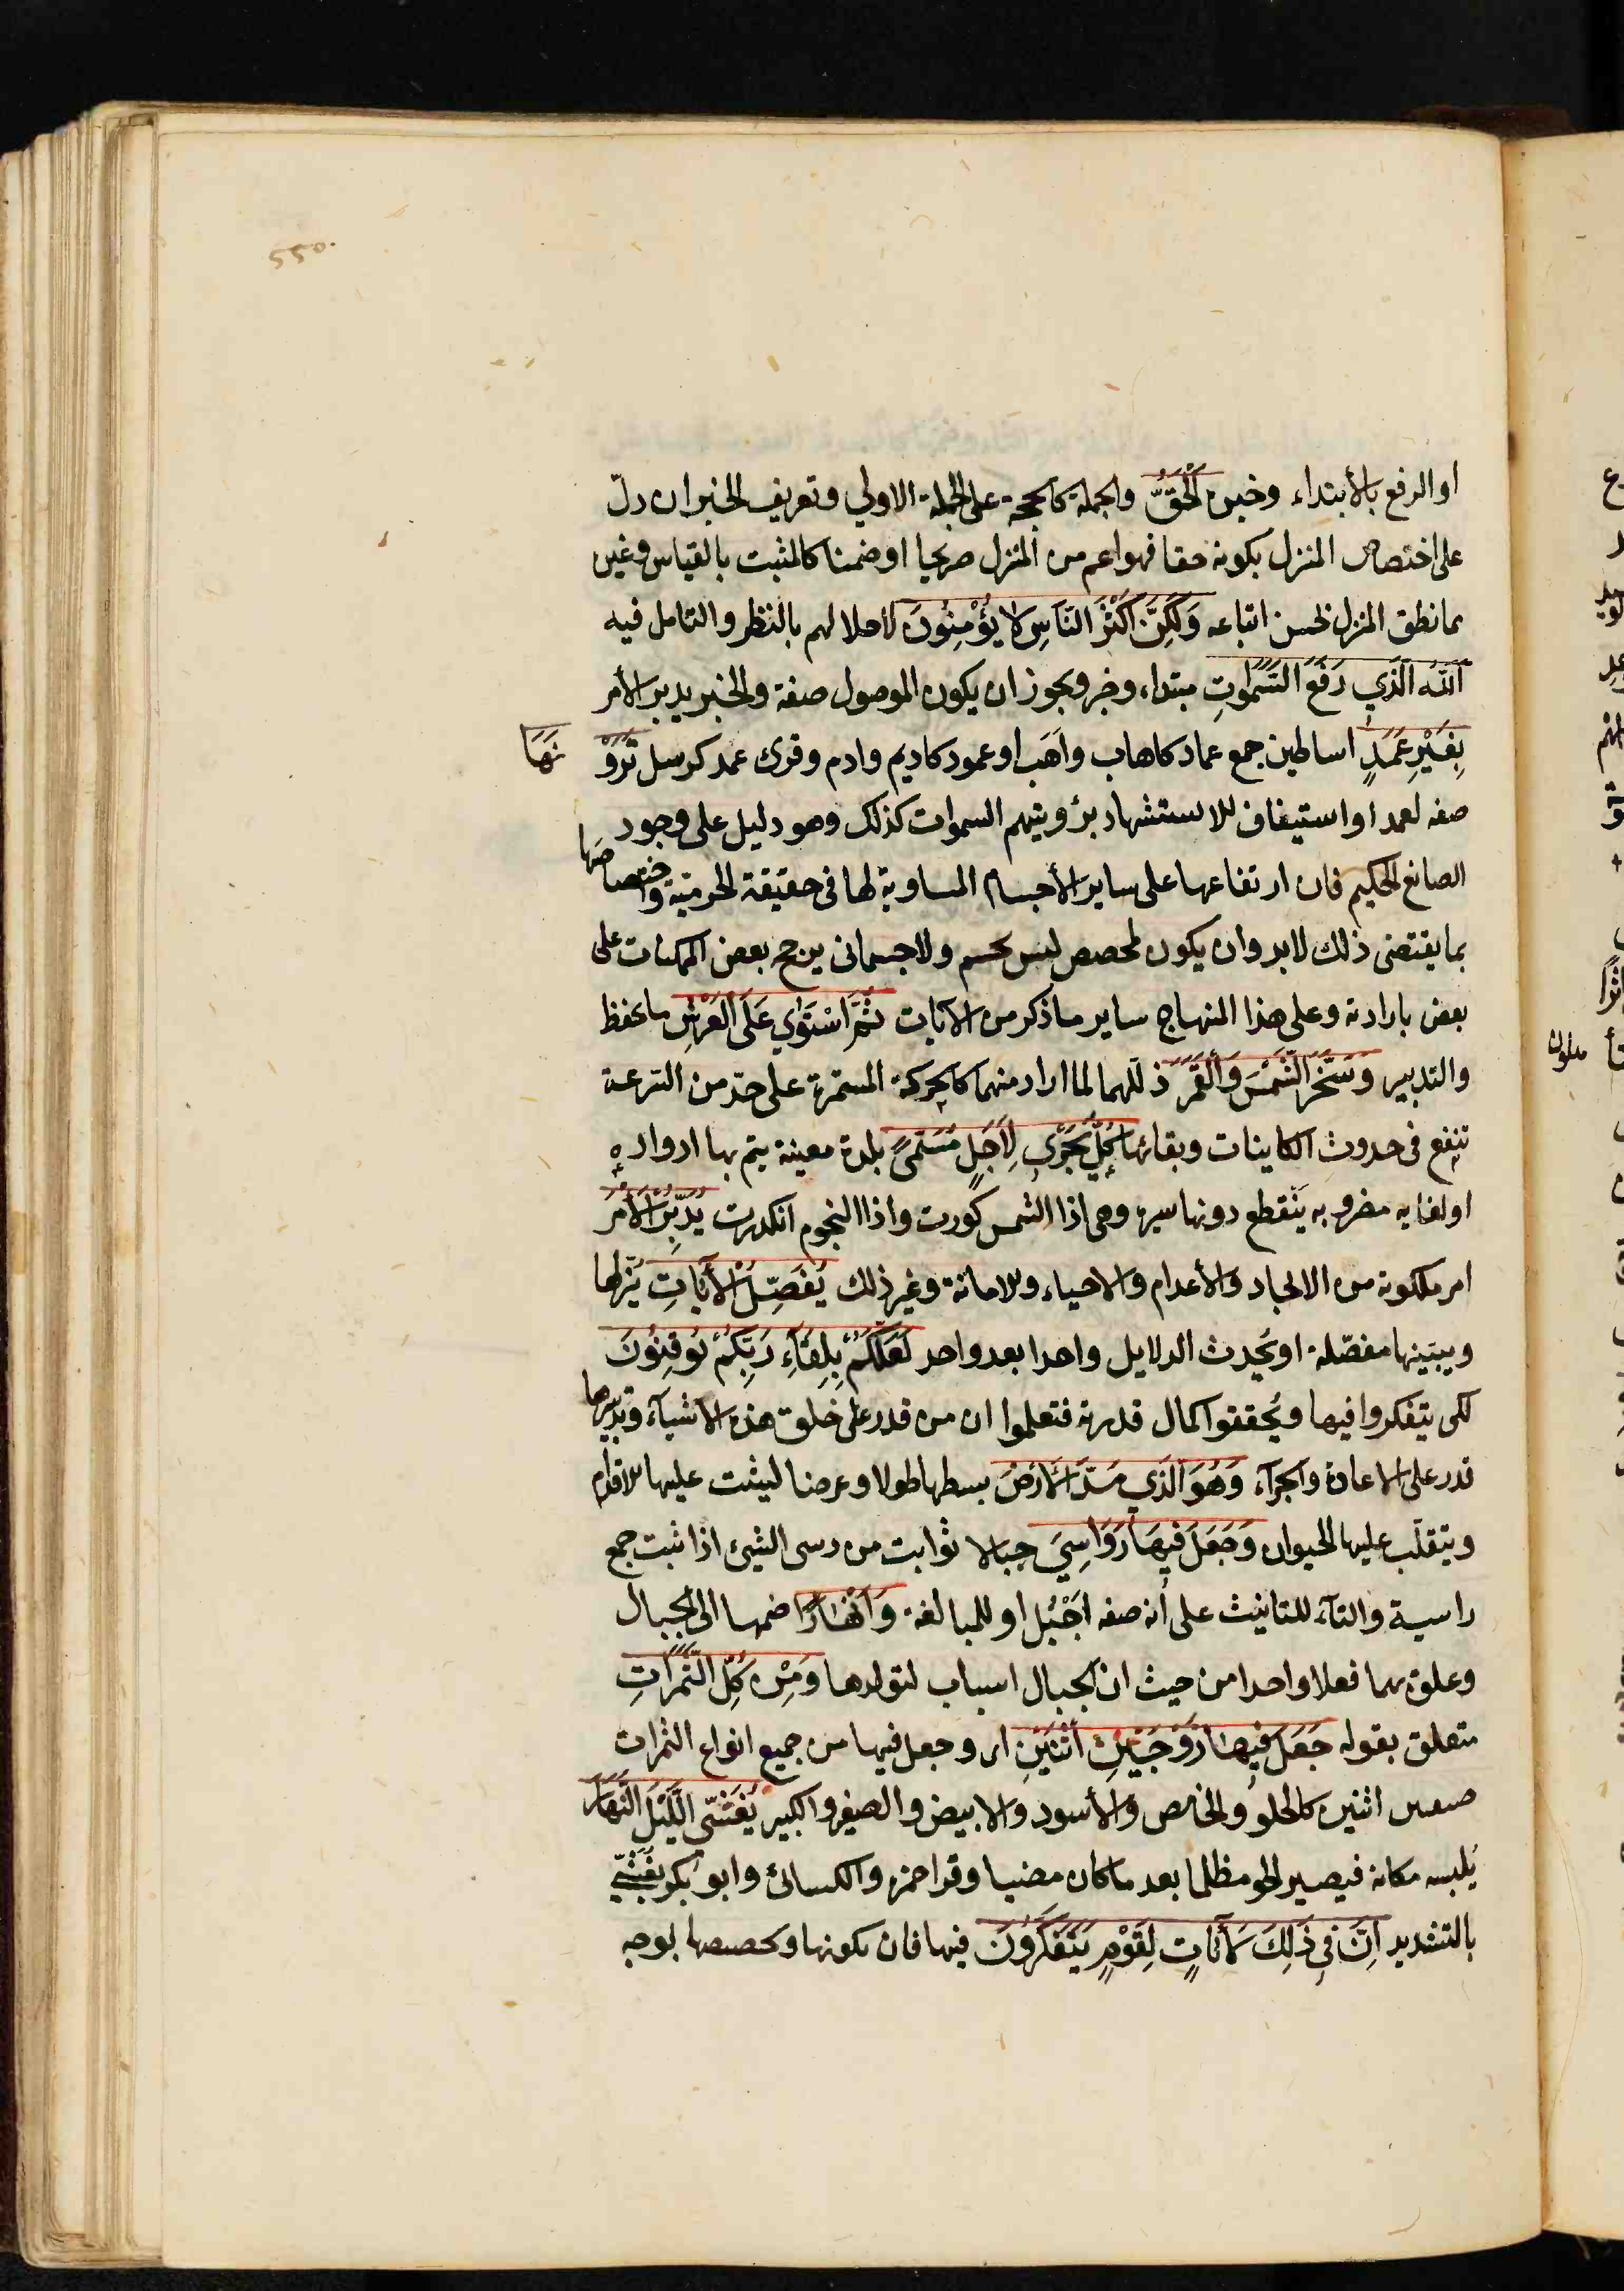 او الرفع بالأبتداء وخبره اَلْحَقُّ والجملة كالحجة على الجملة الاولي وتعريف الخبر ان دلّ
على اختصاص المنزل بكونه حقا فهو اعم من المنزل صريحا او ضمنا كالمثبت بالقياس وغيره
مما نطق المنزل لحسن اتباعه وَلَكِنَّ اَكْثَرَ النَّاسِ لَا يُؤْمِنُونَ لاخلالهم بالنظر والتامل فيه
اَللّٰهُ الَّذِي رَفَعَ السَّمٰوَاتِ مبتداء وخبر ويجوز ان يكون الموصول صفة والخبر يدبر الأمر
بِغَيْرِ عَمَدٍ اساطين جمع عماد كاهاب واَهَب او عمود كاديم وادم وقرئ عمد كرسل تَرَوْ نَهَا
صفه لعمد او استيناف للاستشهاد برؤيتهم السموات كذلك وهو دليل على وجود
الصانع الحكيم فان ارتفاعها على ساير الأجسام المساوية لها فى حقيقة الجرمية واختصاصها
بما يقتضى ذلك لابد وان يكون لمخصص ليس بجسم ولا جسمانى يرجح بعض الممكنات على
بعض بارادته وعلى هذا المنهاج ساير ما ذكر من الايات ثُمَّ اسْتَوٰي عَلَى الْعَرْشِ بالحفظ
والتدبير وَسَخَّرَ الشَّمْسَ وَالْقَمَرَ ذللهما لما اراد منهما كالحركة المستمرة على حدّ من السرعة
تنفع فى حدوث الكاينات وبقائها كُلٌّ يَجْرِي لِأَجَلٍ مُسَمًّى لمدة معينة يتم بها ادواره
او لغايه مضروبه يَنْقطع دونها سيره وهى اذا الشمس كورت واذا النجوم انكدرت يُدَبِّرُ الْاَمْرَ
امر ملكوته من الايجاد والأعدام والاحياء والاماتة وغير ذلك يُفَصِّلُ الْاٰيَاتِ يُنزلها
ويبيّنها مفصّله او يُحدث الدلايل واحدا بعد واحد لَعَلَّكُمْ بِلِقَآءِ رَبِّكُمْ تُوقِنُونَ
لكى يتفكروا فيها ويُحققوا كمال قدرته فتعلموا ان من قدر على خلق هذه الاشيآء وتدبيرها
قدر على الاعادة والجزآء وَهُوَ الَّذِي مَدَّ الْاَرْضَ بسطها طولا وعرضا ليثبت عليها الاقدام
ويتقلّب عليها الحيوان وَجَعَلَ فِيهَا رَوَاسِيَ جبالا ثوابت من رسى الشئ اذا ثبت جمع
راسية والتآء للتانيث على أنه صفه اَجْبُل او للمبالغة وَاَنْهَارًا ضمها الى الجبال
وعلق بهما فعلا واحدا من حيث ان الجبال اسباب لتولدها وَمِنْ كُلِّ الثَّمَرَاتِ
متعلق بقوله جَعَلَ فِيهَا زَوْجَيْنِ اثْنَيْنِ اى وجعل فيها من جميع انواع الثمرات
صنفين اثنين كالحلو والحامض والأسود والابيض والصغير والكبير يُغْشِي اللَّيْلَ النَّهَارَ
يُلبسه مكانه فيصير الجو مظلما بعد ما كان مضيا وقرا حمزه والكسائ وابو بكر يُغَشِّي
بالتشديد اِنَّ فِي ذَلِكَ لَاٰيَاتٍ لِقَوْمٍ يَتَفَكَّرُونَ فيها فان تكونها وتخصصها بوجه